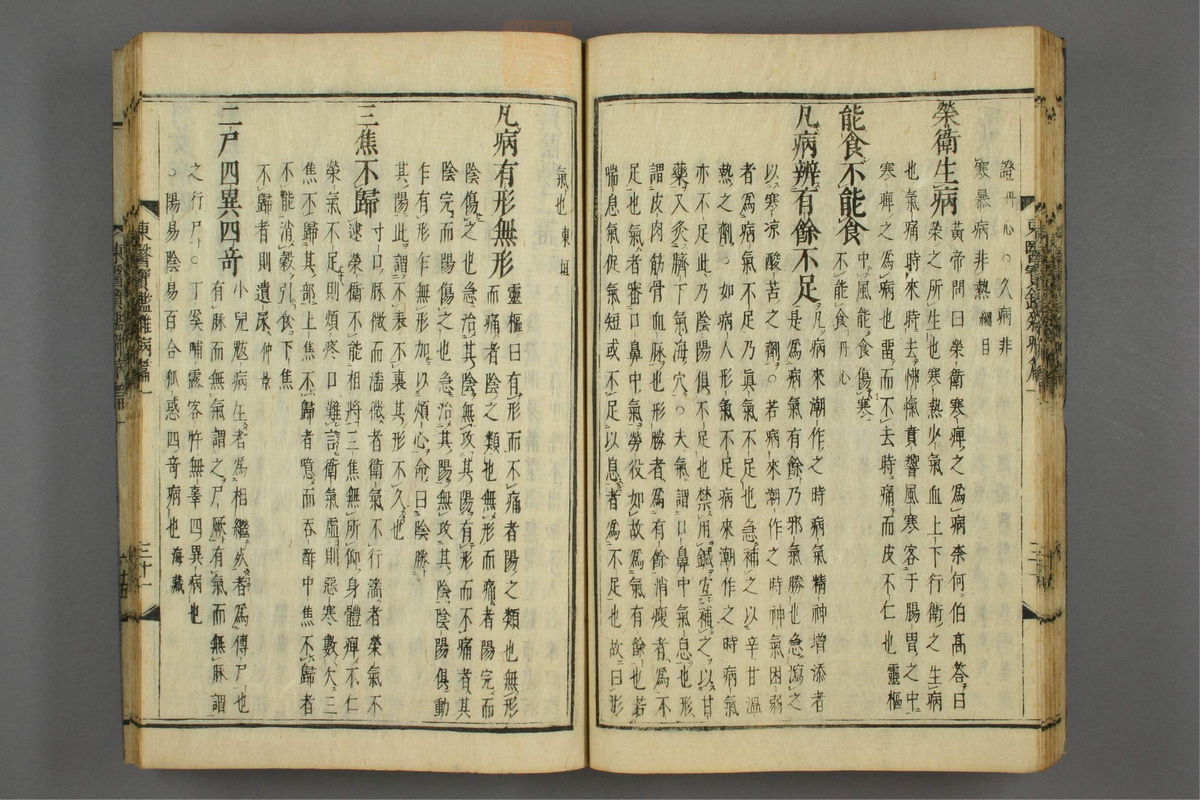 證丹心○久病非
寒暴病非熱綱目
榮衛生病
黃帝問曰榮衛寒痺之爲病奈何伯高答曰
榮之所生也寒熱少氣血上下行衛之生病
也氣痛時來時去怫愾賁響風寒客于腸胃之中
寒痺之爲病也留而不去時痛而皮不仁也靈樞
能食不能食
中風能食傷寒
不能食丹心
凡病辨有餘不足
凡病來潮作之時病氣精神增添者
是爲病氣有餘乃邪氣勝也急瀉之
以寒涼酸苦之劑○若病來潮作之時神氣困弱
者爲病氣不足乃眞氣不足也急補之以辛甘溫
熱之劑○如病人形氣不足病來潮作之時病氣
亦不足此乃陰陽俱不足也禁用鍼宜補之以甘
藥又灸臍下氣海穴○夫氣謂口鼻中氣息也形
謂皮肉筋骨血脉也形勝者爲有餘消瘦者爲不
足也氣者審口鼻中氣勞役如故爲氣有餘也若
喘息氣促氣短或不足以息者爲不足也故曰形
氣也東垣
凡病有形無形
靈樞曰有形而不痛者陽之類也無形
而痛者陰之類也無形而痛者陽完而
陰傷之也急治其陰無攻其陽有形而不痛者其
陰完而陽傷之也急治其陽無攻其陰陰陽俱動
乍有形乍無形加以煩心命曰陰勝
其陽此謂不表不裏其形不久也
三焦不歸
寸口脉微而濇微者衛氣不行濇者榮氣不
逮榮衛不能相將三焦無所仰身體痺不仁
榮氣不足則煩疼口難言衛氣虛則惡寒數欠三
焦不歸其部上焦不歸者噫而吞酢中焦不歸者
不能消穀引食下焦
不歸者則遺尿仲景
二尸四異四奇
小兒䰟病生者爲相繼死者爲傳尸也
有脉而無氣謂之尸厥有氣而無脉謂
之行尸○丁奚哺露客忤無辜四異病也
○陽易陰易百合狐惑四奇病也海藏
東醫寶鑑雜病篇一
三十一